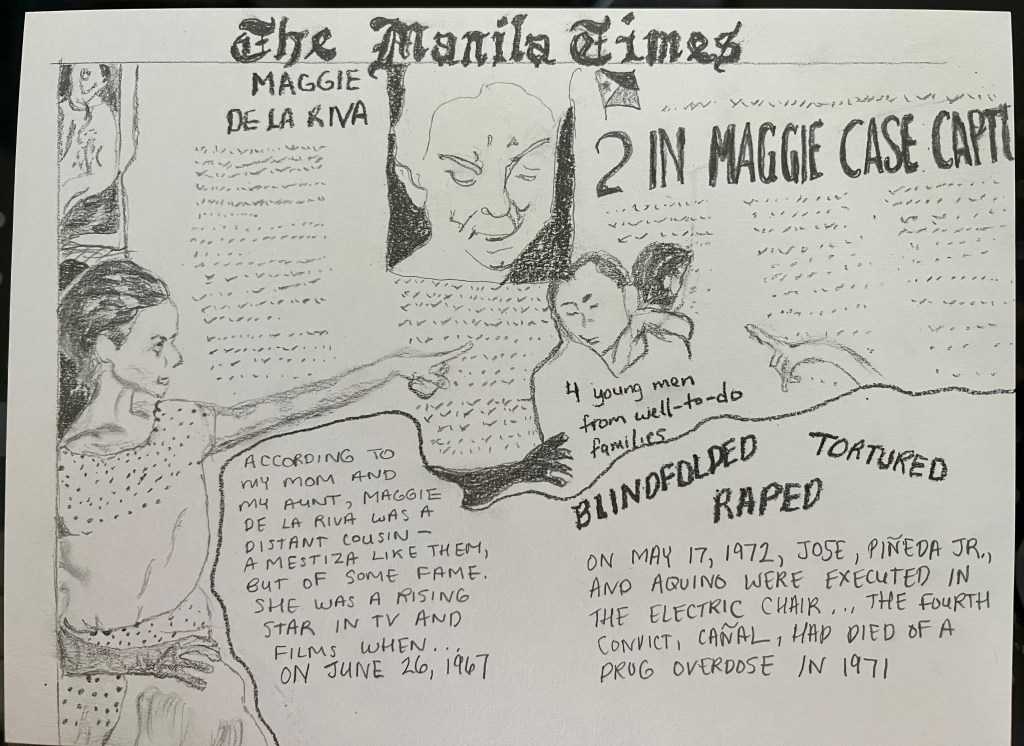 The Manila Times
MAGGIE
DE LA RIVA
2 IN MAGGIE CASE CAPTU
4 young men
from well-to-do
families
BLINDFOLDED
TORTURED
RAPED
ACCORDING TO
MY MOM AND
MY AUNT, MAGGIE
DE LA RIVA WAS A
DISTANT COUSIN—
A MESTIZA LIKE THEM,
BUT OF SOME FAME.
SHE WAS A RISING
STAR IN TV AND
FILMS WHEN...
ON JUNE 26, 1967
ON MAY 17, 1972, JOSE, PIÑEDA JR.,
AND AQUINO WERE EXECUTED IN
THE ELECTRIC CHAIR... THE FOURTH
CONVICT, CAÑAL, HAD DIED OF A
DRUG OVERDOSE IN 1971